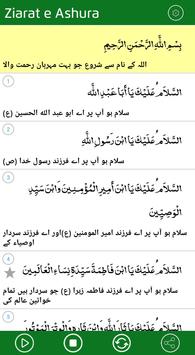 Ziarat e Ashura
بِسْمِ اللَّهِ الرَّحْمَنِ الرَّحِيمِ
اللہ کے نام سے شروع جو بہت مہربان رحمت والا
1
السَّلاَمُ عَلَيْكَ يَا أَبَا عَبْدِ اللَّهِ
سلام ہو آپ پر اے ابو عبد الله الحسین (ع)
2
السَّلاَمُ عَلَيْكَ يَا ابْنَ رَسُولِ اللَّهِ
سلام ہو آپ پر اے فرزند رسول خدا (ص)
3
السَّلاَمُ عَلَيْكَ يَا ابْنَ أَمِيرِ الْمُؤْمِنِينَ وَابْنَ سَيِّدِ
الْوَصِيِّينَ
سلام ہو آپ پر اے فرزند امیر المومنین (ع) اور سردار
اوصیاء کے
4
السَّلاَمُ عَلَيْكَ يَا ابْنَ فَاطِمَةَ سَيِّدَةِ نِسَاءِ الْعَالَمِينَ
سلام ہو آپ پر اے فرزند فاطمہ زہرا (ع) جو سردار ہیں تمام
خواتین عالم کی
5
السَّلاَمُ عَلَيْكَ يَا ثَارَ اللَّهِ وَابْنَ ثَارِهِ وَالْوِتْرَ الْمَوْتُورَ